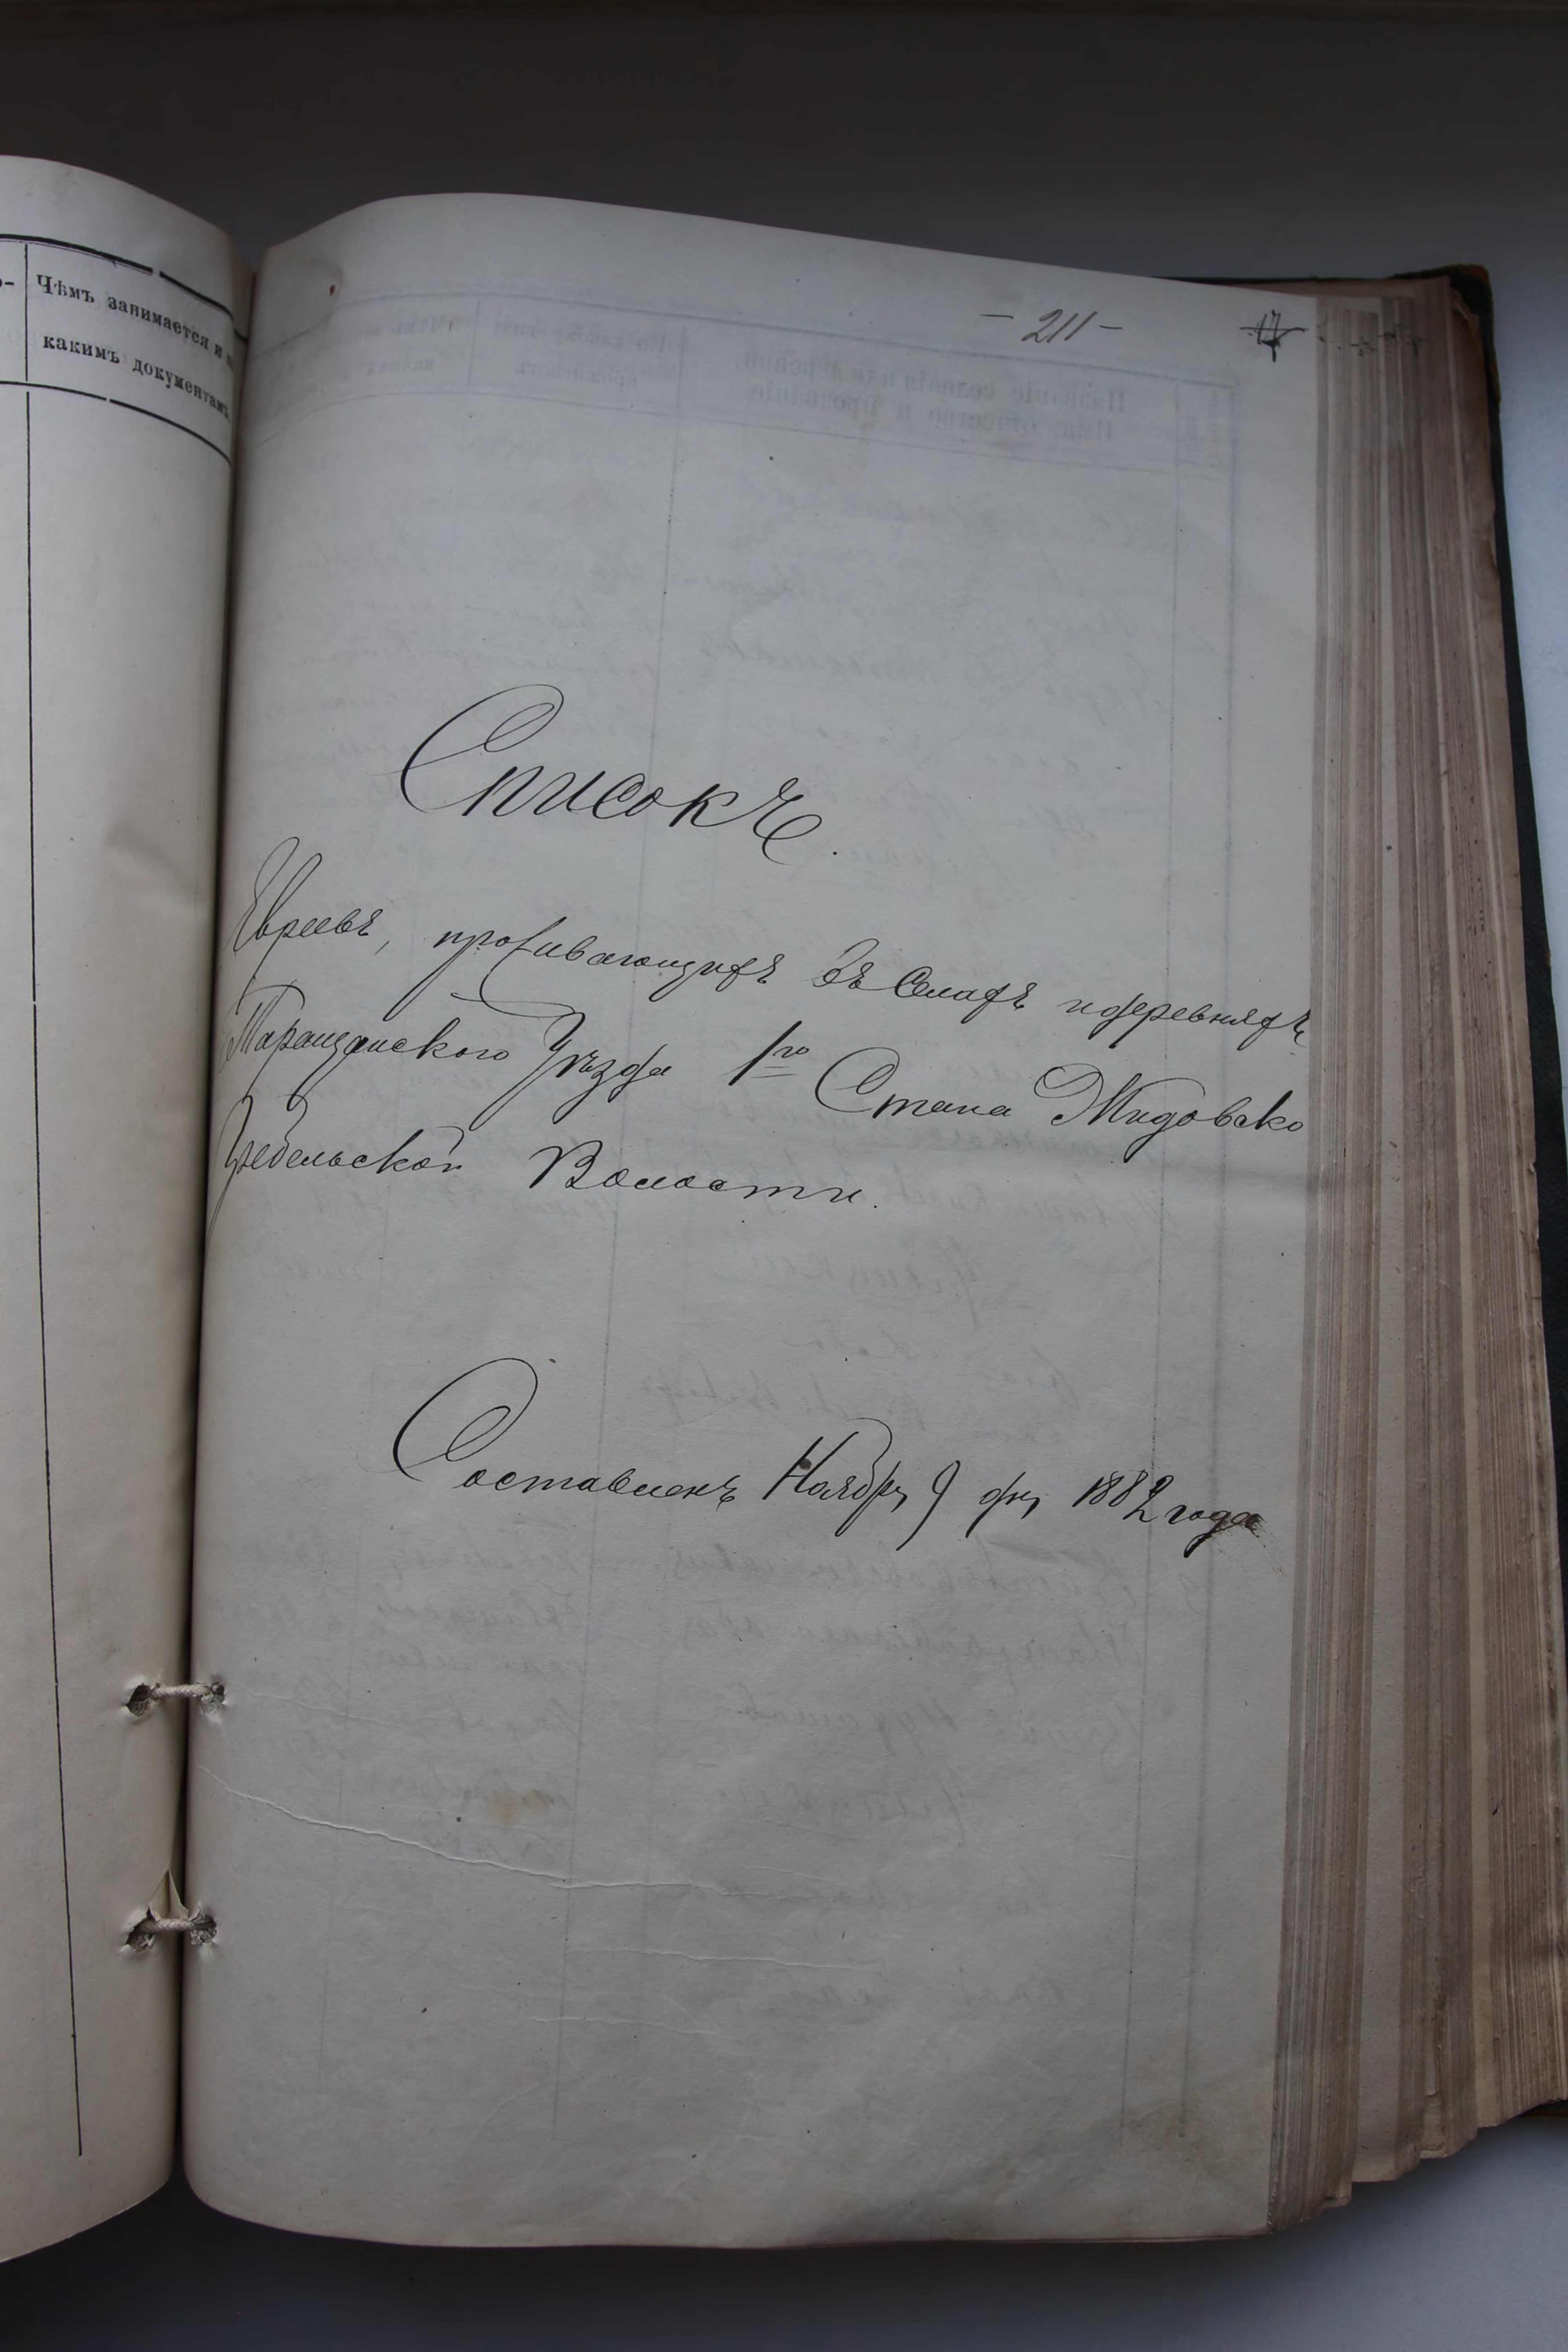 Чѣмъ занимается и
какимъ документамъ
- 211 -
Списокъ.
Евреевъ, проживающихъ въ Селахъ и деревняхъ
Таращанского Уѣзда 1го Стана Жидовско
Гребельской Волости.
Составленъ Ноября 9 дня 1882 года